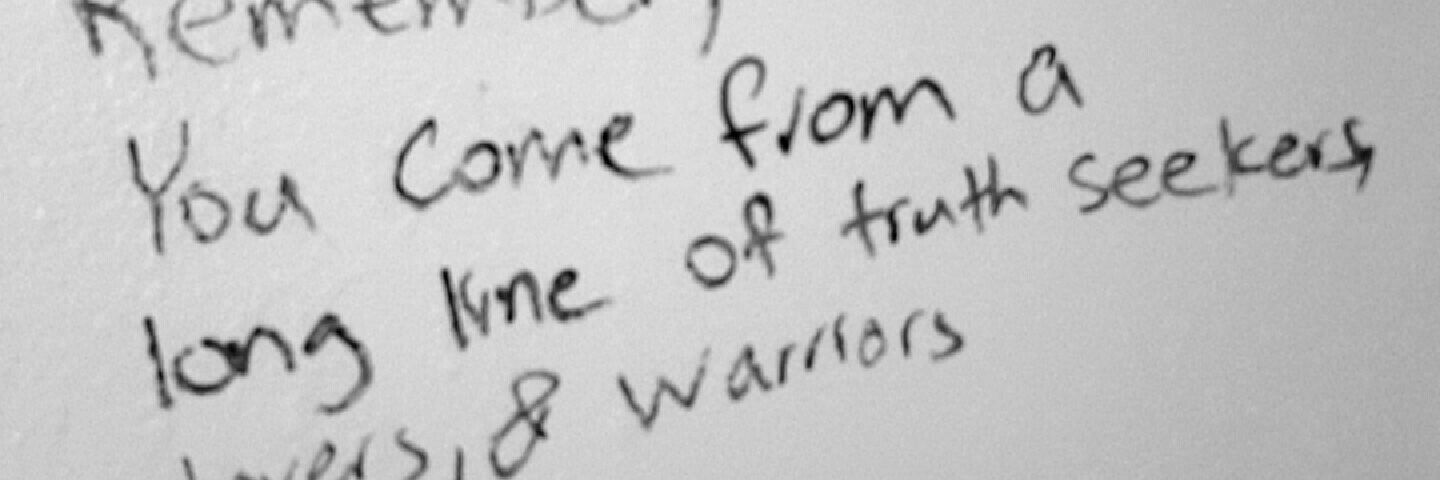 Remember,
You come from a
long line of truth seekers,
lovers, & warriors